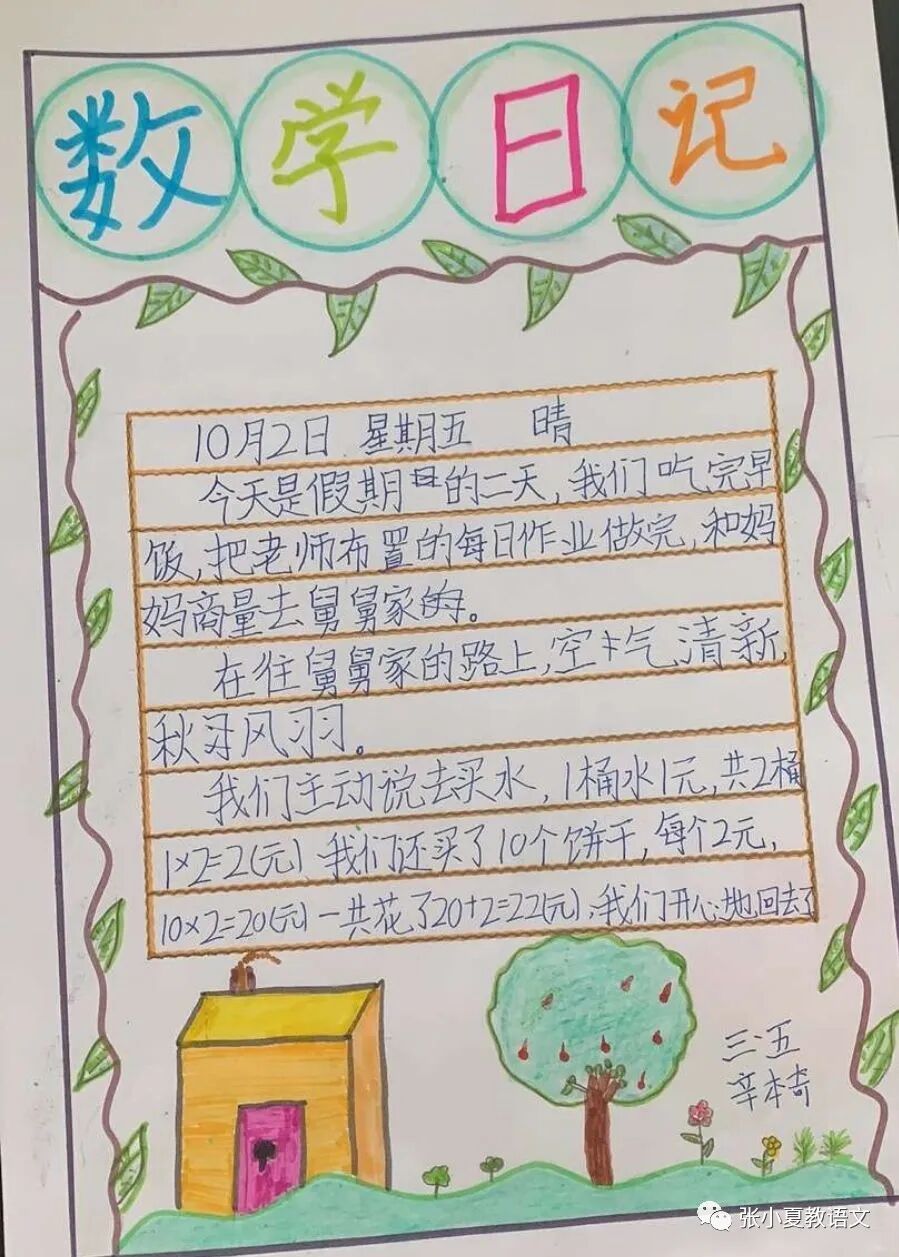 数学日记
10月2日 星期五 晴
今天是假期的二天,我们吃完早
饭,把老师布置的每日作业做完,和妈
妈商量去舅舅家的。
在往舅舅家的路上,空气清新,
秋 风习习。
我们主动说去买水,1桶水1元,共2桶
1×2=2(元)、我们还买了10个饼干,每个2元,
10×2=20(元)一共花了20+2=22(元),我们开心地回去了
三·五
辛本奇
张小夏教语文